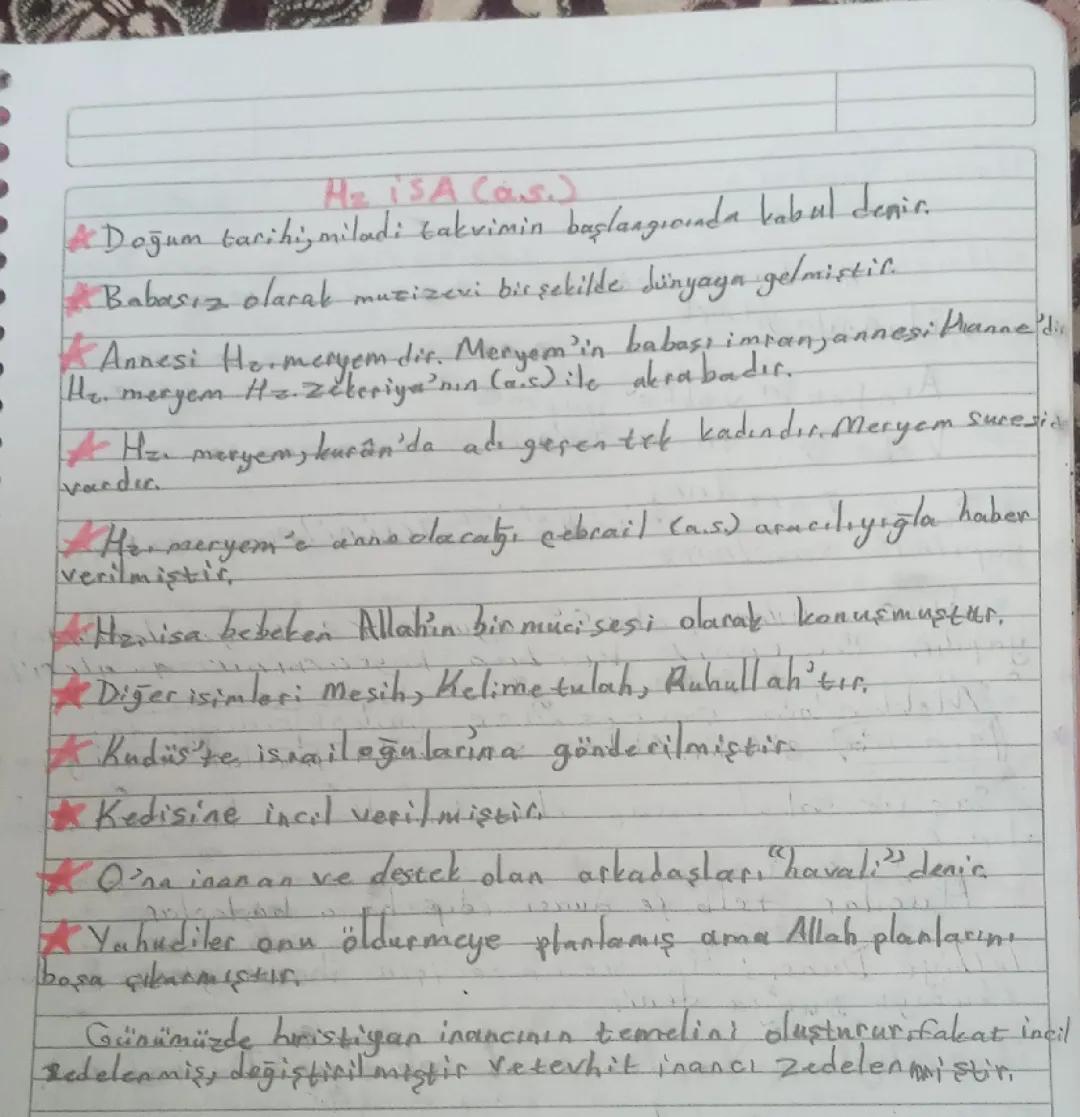 Hz İSA (a.s.)
Doğum tarihi, miladi takvimin başlangıcında kabul denir.
Babasız olarak muzizevi bir şekilde dünyaya gelmiştir.
Annesi Hz. meryem dir. Meryem'in babası imran, annesi Hanne'dir
Hz. meryem Hz. Zekeriya'nın (a.s) ile akrabadır.
Hz. meryem, kurân'da adı geçen tek kadındır. Meryem suresi
vardır.
Hz. meryem'e anne olacağı cebrail (a.s.) aracılıyığla haber
verilmiştir.
Hz. isa bebeken Allah'ın bir mücisesi olarak konuşmuştur.
Diğer isimleri Mesih, Kelimetulah, Ruhullah'tır.
Kudüs'te israiloğularına gönderilmiştir.
Kedisine incil verilmiştir.
O'na inanan ve destek olan arkadaşları "havali" denir.
Yahudiler onu öldurmeye planlamış ama Allah planlarını
boşa çıkarmıştır.
Günümüzde hristiyan inancının temelini oluşturur. fakat incil
zedelenmiş, değiştirilmiştir ve tevhit inancı zedelenmiştir.